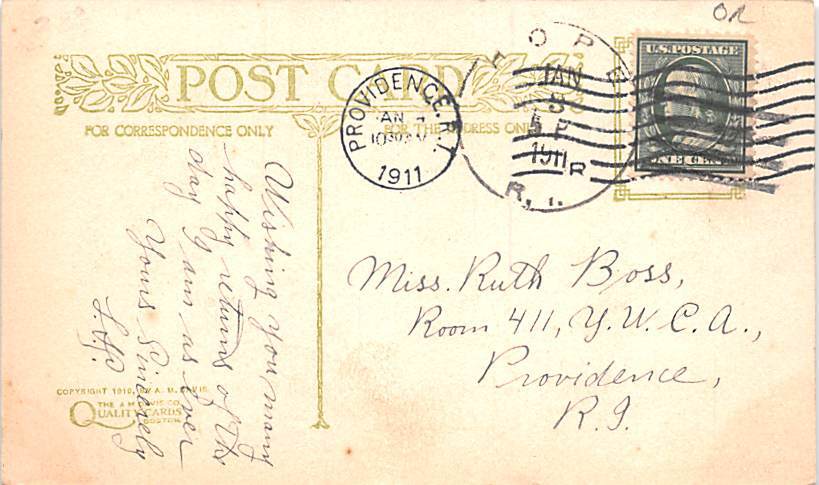 OR
POST CARD
FOR CORRESPONDENCE ONLY
FOR THE ADDRESS ONLY
PROVIDENCE, R.I.
JAN
1911
HOPE
JAN
3
1911
R
R.I.
U.S. POSTAGE
ONE CENT
Wishing you many
happy returns of the
day I am as ever
Yours Sincerely
Miss. Ruth Boss,
Room 411, Y.W.C.A.,
Providence,
R.I.
COPYRIGHT 1910, BY A. M. DAVIS
THE A M DAVIS CO.
QUALITY CARDS
BOSTON